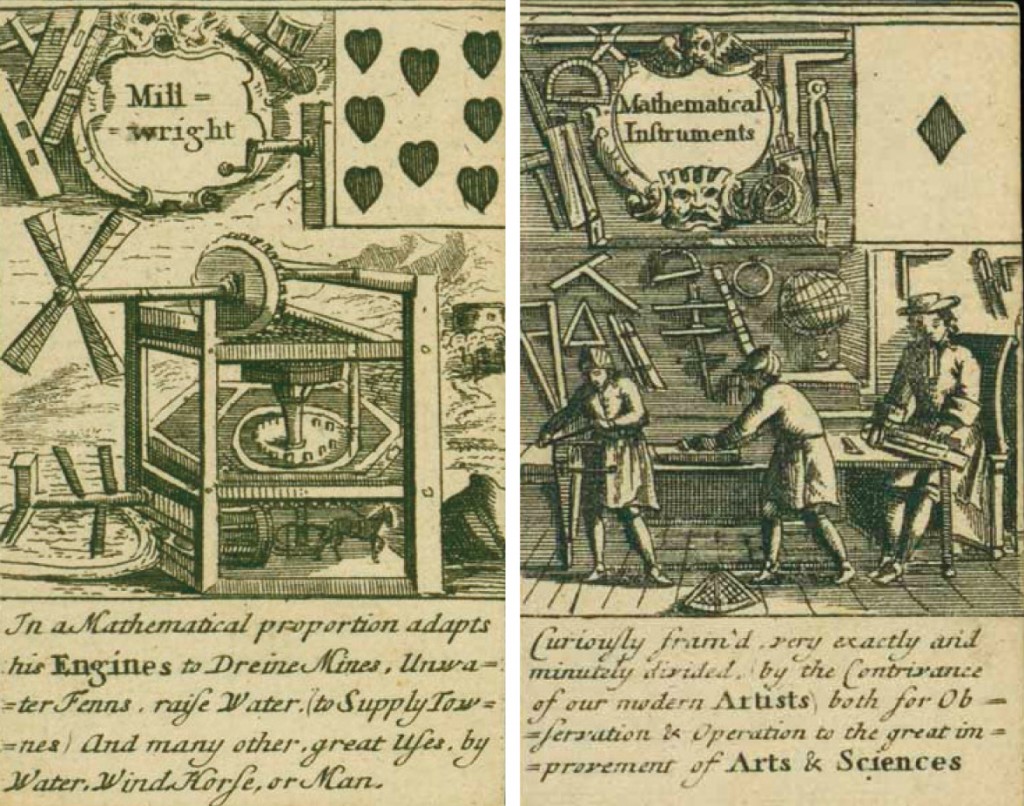 Mill=
=wright
In a Mathematical proportion adapts
his Engines to Dreine Mines, Unwa=
=ter Fenns, raiſe Water, (to Supply Tow=
=nes) And many other, great Uſes, by
Water, Wind, Horſe, or Man.
Mathematical
Inſtruments
Curiouſly fram'd, very exactly and
minutely divided, (by the Contrivance
of our modern Artists) both for Ob=
=ſervation & Operation to the great im=
=provement of Arts & Sciences